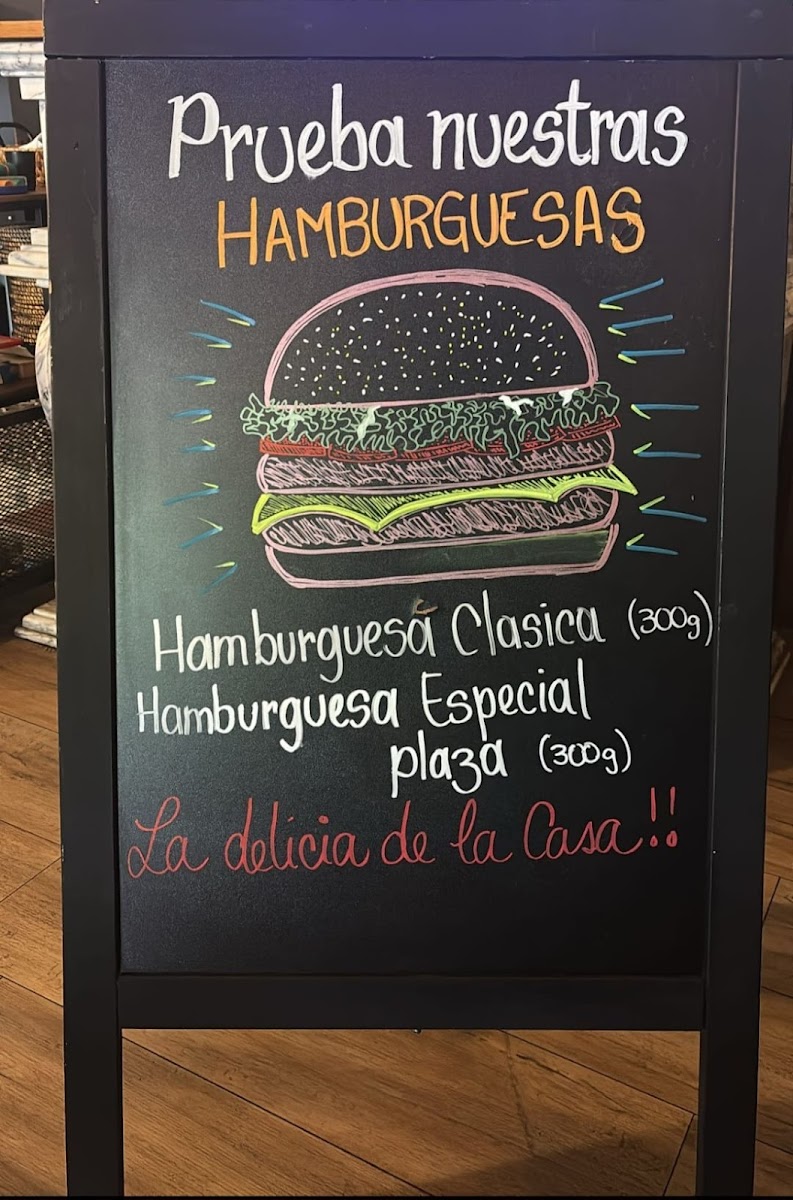 Prueba nuestras
HAMBURGUESAS
Hamburguesa Clasica (300g)
Hamburguesa Especial
plaza (300g)
La delicia de la Casa!!